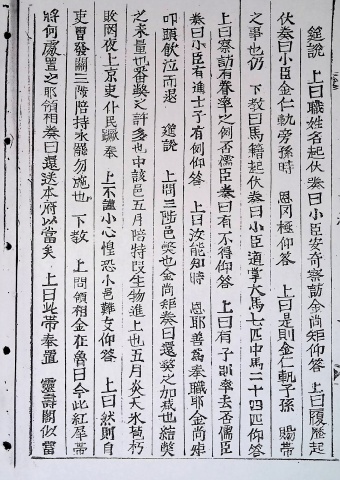 筵說 上曰職姓名起伏奏曰小臣安奇察訪金尙矩仰答 上曰履歷起
伏奏曰小臣金仁軌旁孫時 恩罔極仰答 上曰是則金仁軌子孫 賜帶
之事也仍 下敎曰馬籍起伏奏曰小臣適掌大馬七匹中馬二十四匹仰答
上曰察訪有眷率之例否儒臣奏曰有不得仰答 上曰有子則率去否儒臣
奏曰小臣有進士子有例仰答 上曰汝能知時 恩耶善爲奉職耶金尙矩
叩頭飮泣而退 筵說 上問三階邑獘也金尙矩奏曰還獘之加捄也結獘
之未量也番獘之許多也中該邑五月陪持段生物進上也五月炎天氷苞朽
敗罔夜上京吏仆民蹶奉 上不謹小心惶恐小邑難支仰答 上曰然則自
吏曹發關三階陪持永罷勿施也 下敎 上問領相金在魯曰今此紅犀帶
將何處置之耶領相奏曰還送本府以當矣 上曰此帶奉置 靈壽閣似當